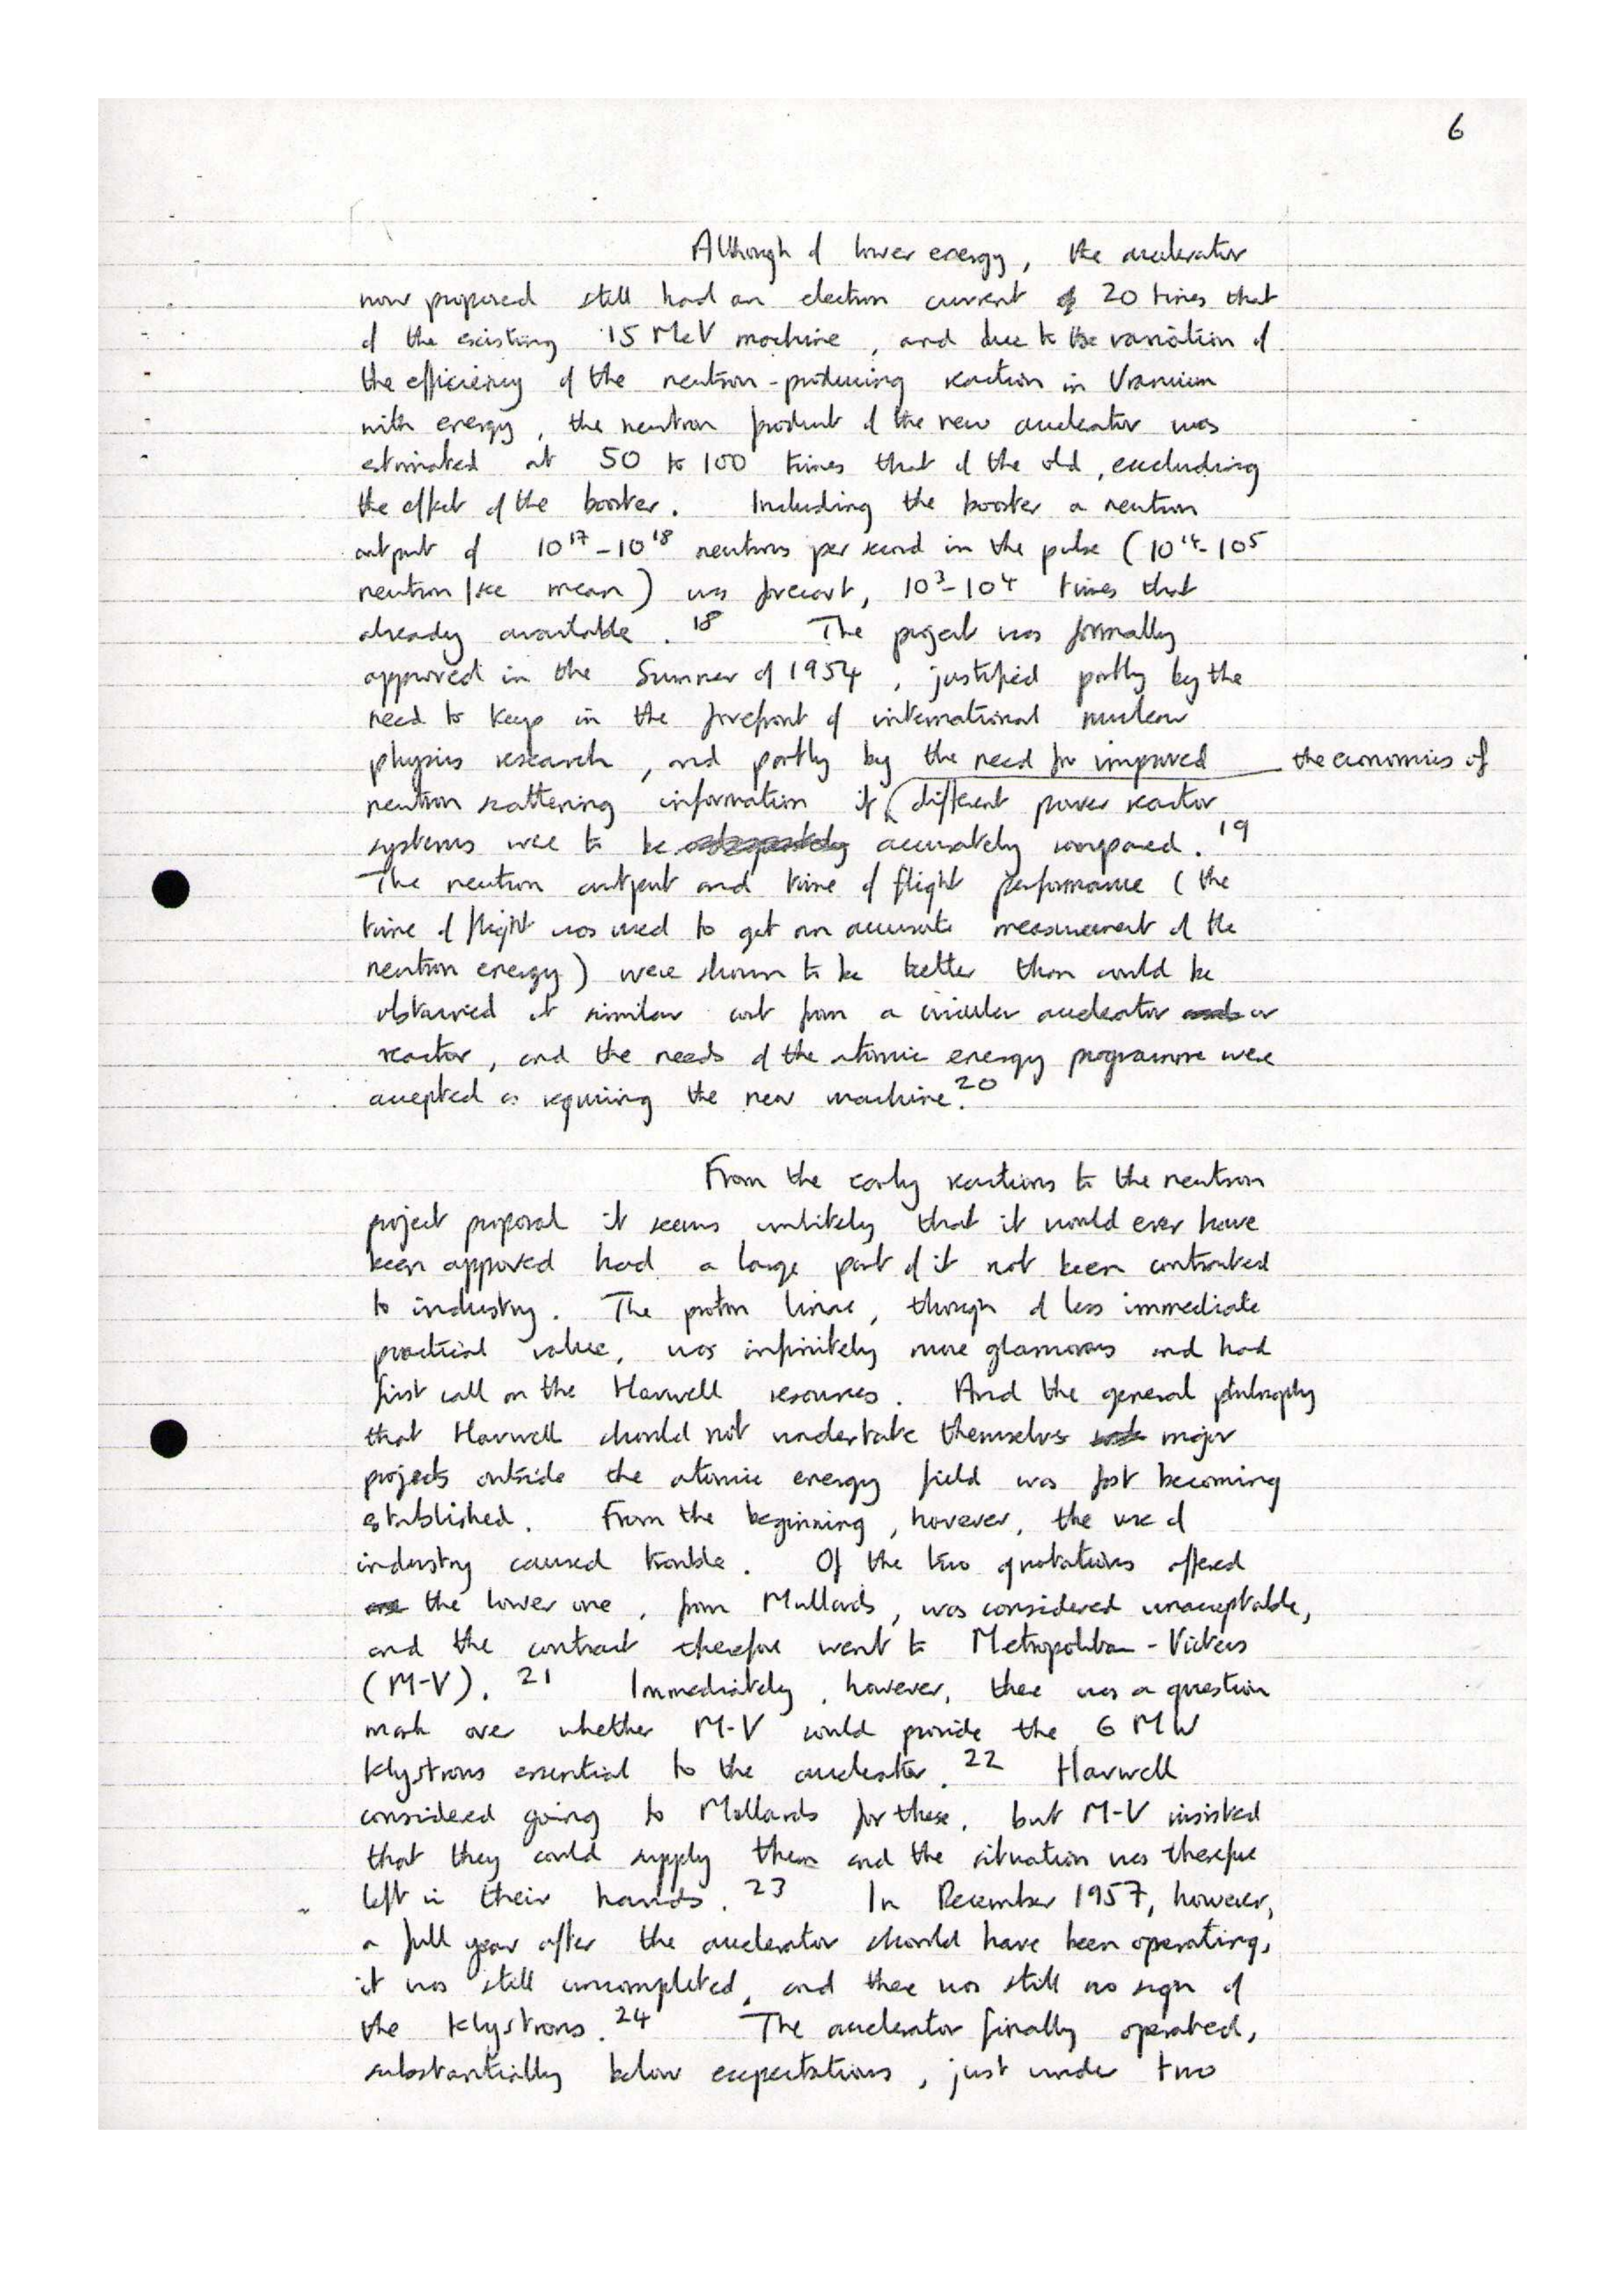 6
Although of lower energy, the accelerator
now proposed still had an electron current of 20 times that
of the existing 15 MeV machine, and due to the variation of
the efficiency of the neutron-producing reaction in Uranium
with energy, the neutron product of the new accelerator was
estimated at 50 to 100 times that of the old, excluding
the effect of the booster. Including the booster a neutron
output of 10¹⁷-10¹⁸ neutrons per second in the pulse (10¹⁴-10⁵
neutron/sec mean) was forecast, 10³-10⁴ times that
already available.¹⁸ The project was formally
approved in the Summer of 1954, justified partly by the
need to keep in the forefront of international nuclear
physics research, and partly by the need for improved
neutron scattering information if the economies of different power reactor
systems were to be accurately compared.¹⁹
The neutron output and time of flight performance (the
time of flight was used to get an accurate measurement of the
neutron energy) were shown to be better than could be
obtained at similar cost from a circular accelerator or
reactor, and the needs of the atomic energy programme were
accepted as requiring the new machine.²⁰
From the early reactions to the neutron
project proposal it seems unlikely that it would ever have
been approved had a large part of it not been contracted
to industry. The proton linac, though of less immediate
practical value, was infinitely more glamorous and had
first call on the Harwell resources. And the general philosophy
that Harwell should not undertake themselves major
projects outside the atomic energy field was fast becoming
established. From the beginning, however, the use of
industry caused trouble. Of the two quotations offered
the lower one, from Mullards, was considered unacceptable,
and the contract therefore went to Metropolitan-Vickers
(M-V).²¹ Immediately, however, there was a question
mark over whether M-V could provide the 6 MW
klystrons essential to the accelerator.²² Harwell
considered going to Mullards for these, but M-V insisted
that they could supply them and the situation was therefore
left in their hands.²³ In December 1957, however,
a full year after the accelerator should have been operating,
it was still uncompleted, and there was still no sign of
the klystrons.²⁴ The accelerator finally operated,
substantially below expectations, just under two